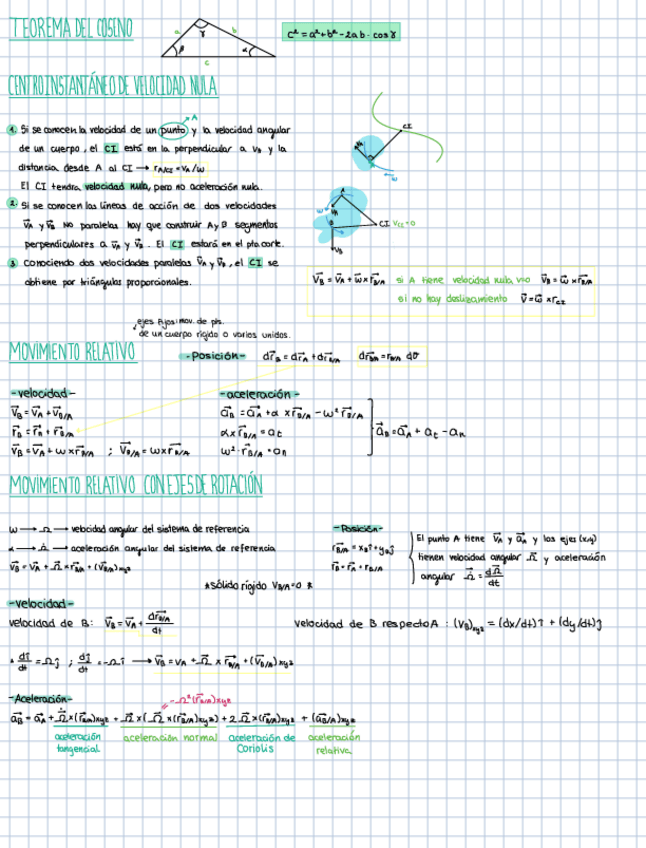 TEOREMA DEL COSENO
a b γ β α c
c² = a² + b² - 2ab · cos γ
CENTRO INSTANTÁNEO DE VELOCIDAD NULA
A
1. Si se conocen la velocidad de un punto y la velocidad angular
de un cuerpo, el CI está en la perpendicular a vA y la
distancia desde A al CI → rA/CI = vA/w
El CI tendrá velocidad nula, pero no aceleración nula.
CI
VA
w
2. Si se conocen las líneas de acción de dos velocidades
v⃗A y v⃗B no paralelas hay que construir A y B segmentos
perpendiculares a v⃗A y v⃗B. El CI estará en el pto.corte.
A
w
VA
B
CI VCI = 0
VB
3. Conociendo dos velocidades paralelas v⃗A y v⃗B, el CI se
obtiene por triángulos proporcionales.
V⃗B = V⃗A + ω⃗ x r⃗B/A si A tiene velocidad nula v=0 V⃗B = ω⃗ x r⃗B/A
si no hay deslizamiento V⃗ = ω⃗ x rCI
ejes fijos: mov. de pts.
de un cuerpo rígido o varios unidos.
MOVIMIENTO RELATIVO
-Posición- dr⃗B = dr⃗A + dr⃗B/A dr⃗B/A = rB/A dθ
-velocidad-
V⃗B = V⃗A + V⃗B/A
r⃗B = r⃗A + r⃗B/A
V⃗B = V⃗A + ω x r⃗B/A ; V⃗B/A = ω x r⃗B/A
-aceleración-
a⃗B = a⃗A + α x r⃗B/A - ω² r⃗B/A
α x r⃗B/A = at
ω² · r⃗B/A = an
a⃗B = a⃗A + at - an
MOVIMIENTO RELATIVO CON EJES DE ROTACIÓN
ω → Ω → velocidad angular del sistema de referencia
α → Ω̇ → aceleración angular del sistema de referencia
V⃗B = V⃗A + Ω⃗ x r⃗B/A + (V⃗B/A)xyz
* sólido rígido VB/A = 0 *
-Posición-
r⃗B/A = xB î + yB ĵ
r⃗B = r⃗A + rB/A
El punto A tiene V⃗A y a⃗A y los ejes (x,y)
tienen velocidad angular Ω⃗ y aceleración
angular Ω̇ = dΩ⃗/dt
-velocidad-
velocidad de B: V⃗B = V⃗A + dr⃗B/A/dt
velocidad de B respecto A : (VB)xyz = (dx/dt) î + (dy/dt) ĵ
* dî/dt = Ωĵ ; dĵ/dt = -Ωî → V⃗B = VA + Ω⃗ x r⃗B/A + (V⃗B/A)xyz
-Aceleración-
= -Ω²(r⃗B/A)xyz
a⃗B = a⃗A + Ω̇ x (r⃗B/A)xyz + Ω⃗ x (Ω⃗ x (r⃗B/A)xyz) + 2 Ω⃗ x (r⃗B/A)xyz + (a⃗B/A)xyz
aceleración tangencial
aceleración normal
aceleración de Coriolis
aceleración relativa